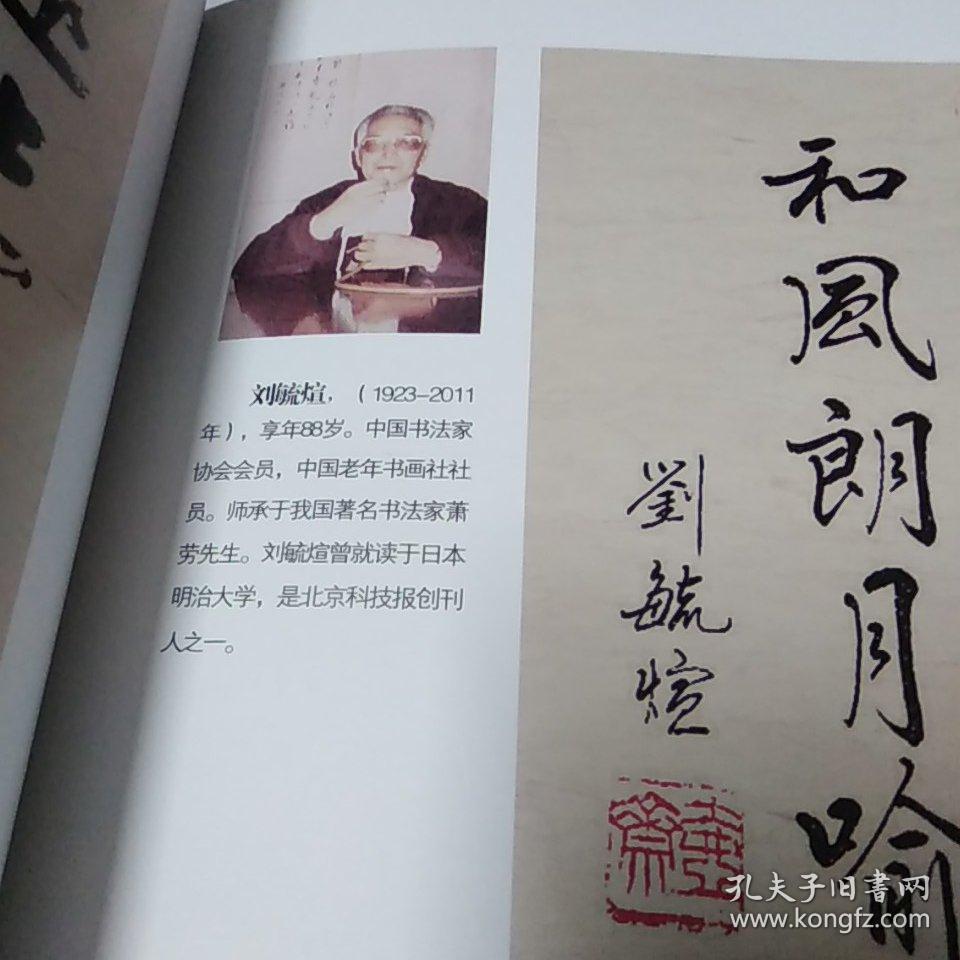 刘毓煊，（1923-2011
年），享年88岁。中国书法家
协会会员，中国老年书画社社
员。师承于我国著名书法家萧
劳先生。刘毓煊曾就读于日本
明治大学，是北京科技报创刊
人之一。
和風朗月喻
劉毓煊
孔夫子旧書网
www.kongfz.com